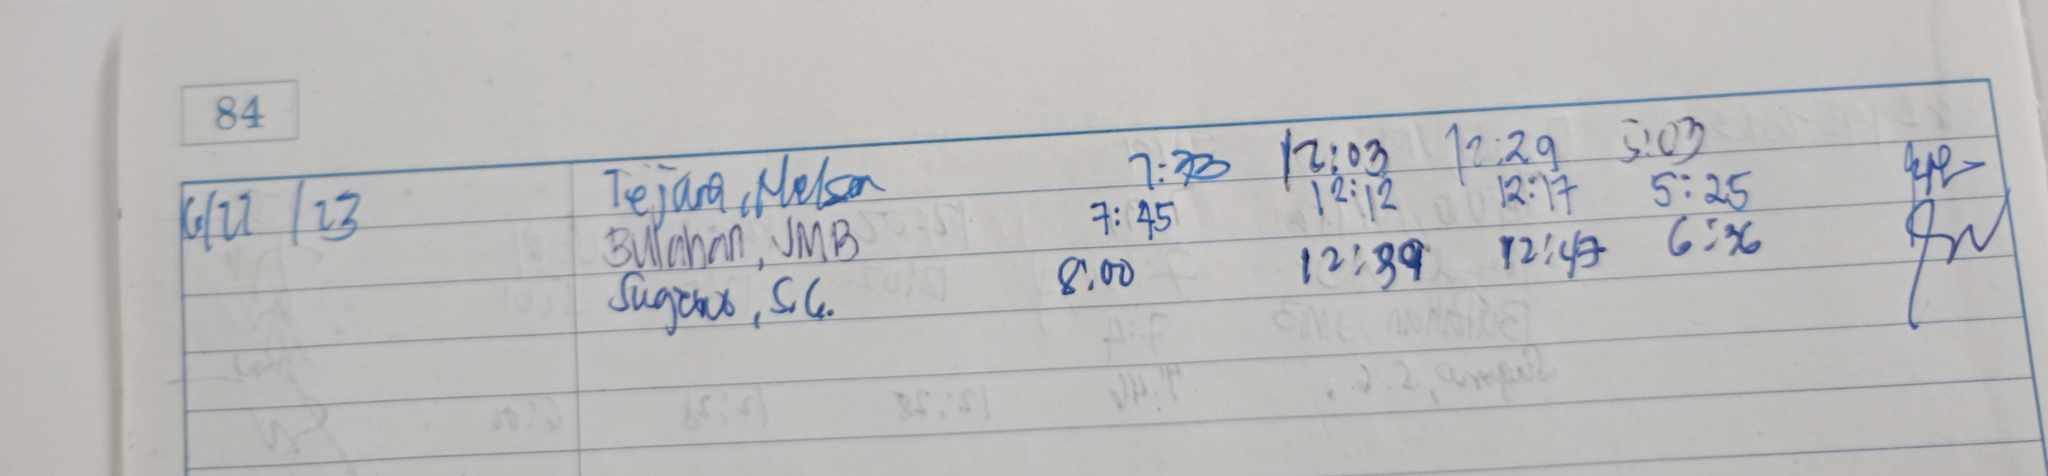 84
6/22/23 Tejara, Nelson 7:33 12:03 12:29 5:03
Bulahan, JMB 7:45 12:12 12:17 5:25
S.C. 8:00 12:39 12:47 6:36